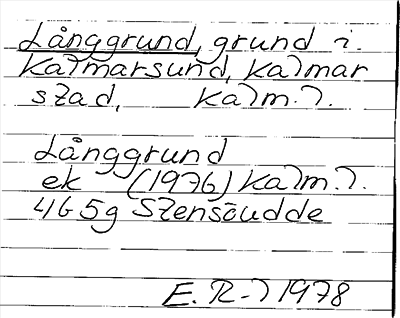 Långgrund, grund i
Kalmarsund, Kalmar
stad, Kalm. l.
Långgrund
ek (1976) Kalm. l.
4G 5g Stensöudde
E. R-l 1978